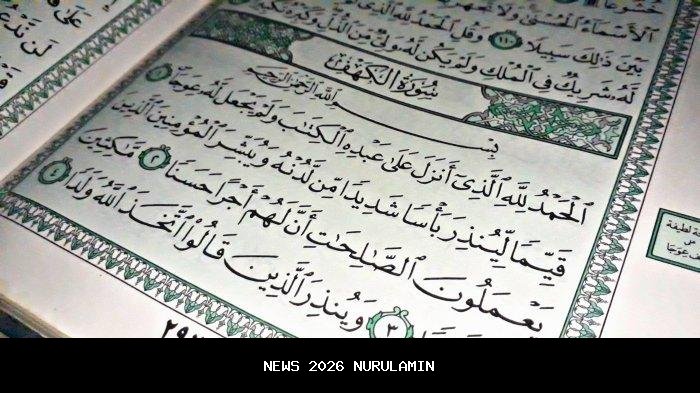 ٱلْأَسْمَآءُ ٱلْحُسْنَىٰ وَلَا تَجْهَرْ
بَيْنَ ذَٰلِكَ سَبِيلًا ١١٠ وَقُلِ ٱلْحَمْدُ لِلَّهِ ٱلَّذِى
لَّهُۥ شَرِيكٌ فِى ٱلْمُلْكِ وَلَمْ يَكُن لَّهُۥ وَلِىٌّ مِّنَ ٱلذُّلِّ وَكَبِّرْهُ تَكْبِيرًا
سُورَةُ الْكَهْفِ
بِسْمِ ٱللَّهِ ٱلرَّحْمَٰنِ ٱلرَّحِيمِ
ٱلْحَمْدُ لِلَّهِ ٱلَّذِىٓ أَنزَلَ عَلَىٰ عَبْدِهِ ٱلْكِتَٰبَ وَلَمْ يَجْعَل لَّهُۥ عِوَجَا ١
قَيِّمًا لِّيُنذِرَ بَأْسًا شَدِيدًا مِّن لَّدُنْهُ وَيُبَشِّرَ ٱلْمُؤْمِنِينَ ٱلَّذِينَ
يَعْمَلُونَ ٱلصَّٰلِحَٰتِ أَنَّ لَهُمْ أَجْرًا حَسَنًا ٢ مَّٰكِثِينَ
٣ وَيُنذِرَ ٱلَّذِينَ قَالُوا۟ ٱتَّخَذَ ٱللَّهُ وَلَدًا ٤
NEWS 2026 NURULAMIN